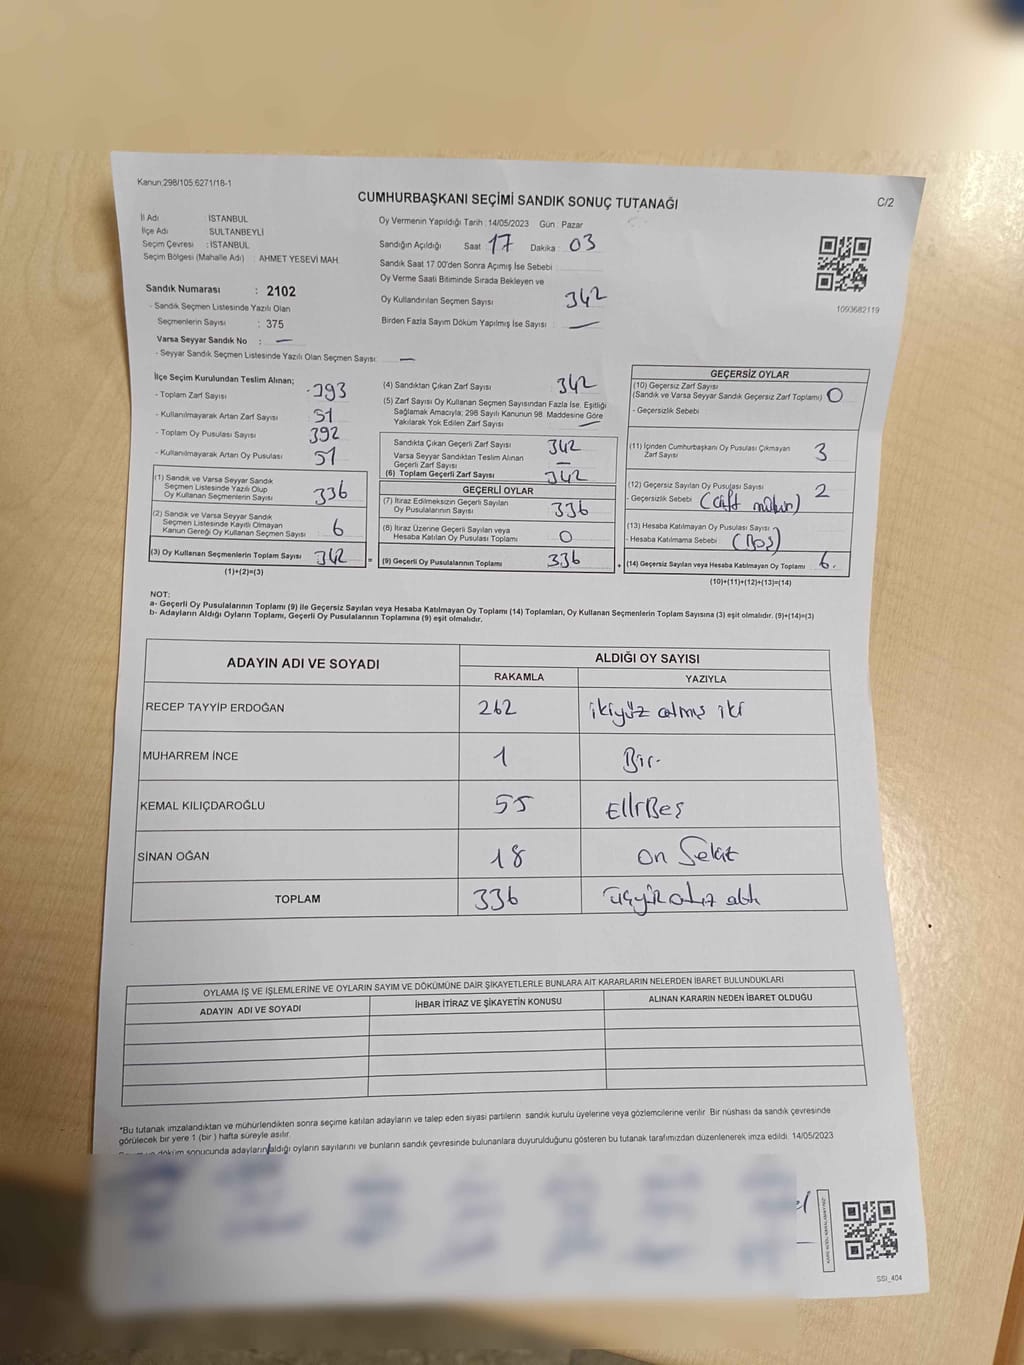 Kanun,298/105 6271/18-1
CUMHURBAŞKANI SEÇİMİ SANDIK SONUÇ TUTANAĞI
C/2
İl Adı : İSTANBUL
İlçe Adı : SULTANBEYLİ
Seçim Çevresi : İSTANBUL
Seçim Bölgesi (Mahalle Adı) : AHMET YESEVİ MAH.
Sandık Numarası : 2102
- Sandık Seçmen Listesinde Yazılı Olan
Seçmenlerin Sayısı : 375
Varsa Seyyar Sandık No : —
- Seyyar Sandık Seçmen Listesinde Yazılı Olan Seçmen Sayısı: —
Oy Vermenin Yapıldığı Tarih : 14/05/2023 Gün : Pazar
Sandığın Açıldığı Saat : 17 Dakika : 03
Sandık Saat 17.00'den Sonra Açımış İse Sebebi :
Oy Verme Saati Bitiminde Sırada Bekleyen ve
Oy Kullandırılan Seçmen Sayısı : 342
Birden Fazla Sayım Döküm Yapılmış İse Sayısı : —
1093682119
İlçe Seçim Kurulundan Teslim Alınan;
- Toplam Zarf Sayısı : 393
- Kullanılmayarak Artan Zarf Sayısı : 51
- Toplam Oy Pusulası Sayısı : 392
- Kullanılmayarak Artan Oy Pusulası : 51
(1) Sandık ve Varsa Seyyar Sandık
Seçmen Listesinde Yazılı Olup
Oy Kullanan Seçmenlerin Sayısı : 336
(2) Sandık ve Varsa Seyyar Sandık
Seçmen Listesinde Kayıtlı Olmayan
Kanun Gereği Oy Kullanan Seçmen Sayısı : 6
(3) Oy Kullanan Seçmenlerin Toplam Sayısı : 342
(1)+(2)=(3)
(4) Sandıktan Çıkan Zarf Sayısı : 342
(5) Zarf Sayısı Oy Kullanan Seçmen Sayısından Fazla İse, Eşitliği
Sağlamak Amacıyla; 298 Sayılı Kanunun 98. Maddesine Göre
Yakılarak Yok Edilen Zarf Sayısı : —
Sandıkta Çıkan Geçerli Zarf Sayısı : 342
Varsa Seyyar Sandıktan Teslim Alınan
Geçerli Zarf Sayısı : —
(6) Toplam Geçerli Zarf Sayısı : 342
GEÇERLİ OYLAR
(7) İtiraz Edilmeksizin Geçerli Sayılan
Oy Pusulalarının Sayısı : 336
(8) İtiraz Üzerine Geçerli Sayılan veya
Hesaba Katılan Oy Pusulası Toplamı : 0
= (9) Geçerli Oy Pusulalarının Toplamı : 336
GEÇERSİZ OYLAR
(10) Geçersiz Zarf Sayısı
(Sandık ve Varsa Seyyar Sandık Geçersiz Zarf Toplamı) : 0
- Geçersizlik Sebebi :
(11) İçinden Cumhurbaşkanı Oy Pusulası Çıkmayan
Zarf Sayısı : 3
(12) Geçersiz Sayılan Oy Pusulası Sayısı : 2
- Geçersizlik Sebebi : (Çift mühür)
(13) Hesaba Katılmayan Oy Pusulası Sayısı :
- Hesaba Katılmama Sebebi : (Boş)
+ (14) Geçersiz Sayılan veya Hesaba Katılmayan Oy Toplamı : 6.
(10)+(11)+(12)+(13)=(14)
NOT:
a- Geçerli Oy Pusulalarının Toplamı (9) ile Geçersiz Sayılan veya Hesaba Katılmayan Oy Toplamı (14) Toplamları, Oy Kullanan Seçmenlerin Toplam Sayısına (3) eşit olmalıdır. (9)+(14)=(3)
b- Adayların Aldığı Oyların Toplamı, Geçerli Oy Pusulalarının Toplamına (9) eşit olmalıdır.
ADAYIN ADI VE SOYADI
ALDIĞI OY SAYISI
RAKAMLA YAZIYLA
RECEP TAYYİP ERDOĞAN 262 ikiyüz atmış iki
MUHARREM İNCE 1 Bir
KEMAL KILIÇDAROĞLU 55 ElliBeş
SİNAN OĞAN 18 on Sekiz
TOPLAM 336 üçyüz otuz altı
OYLAMA İŞ VE İŞLEMLERİNE VE OYLARIN SAYIM VE DÖKÜMÜNE DAİR ŞİKAYETLERLE BUNLARA AİT KARARLARIN NELERDEN İBARET BULUNDUKLARI
ADAYIN ADI VE SOYADI İHBAR İTİRAZ VE ŞİKAYETİN KONUSU ALINAN KARARIN NEDEN İBARET OLDUĞU
*Bu tutanak imzalandıktan ve mühürlendikten sonra seçime katılan adayların ve talep eden siyasi partilerin sandık kurulu üyelerine veya gözlemcilerine verilir. Bir nüshası da sandık çevresinde
görülecek bir yere 1 (bir) hafta süreyle asılır.
döküm sonucunda adayların aldığı oyların sayılarını ve bunların sandık çevresinde bulunanlara duyurulduğunu gösteren bu tutanak tarafımızdan düzenlenerek imza edildi. 14/05/2023
SSI_404